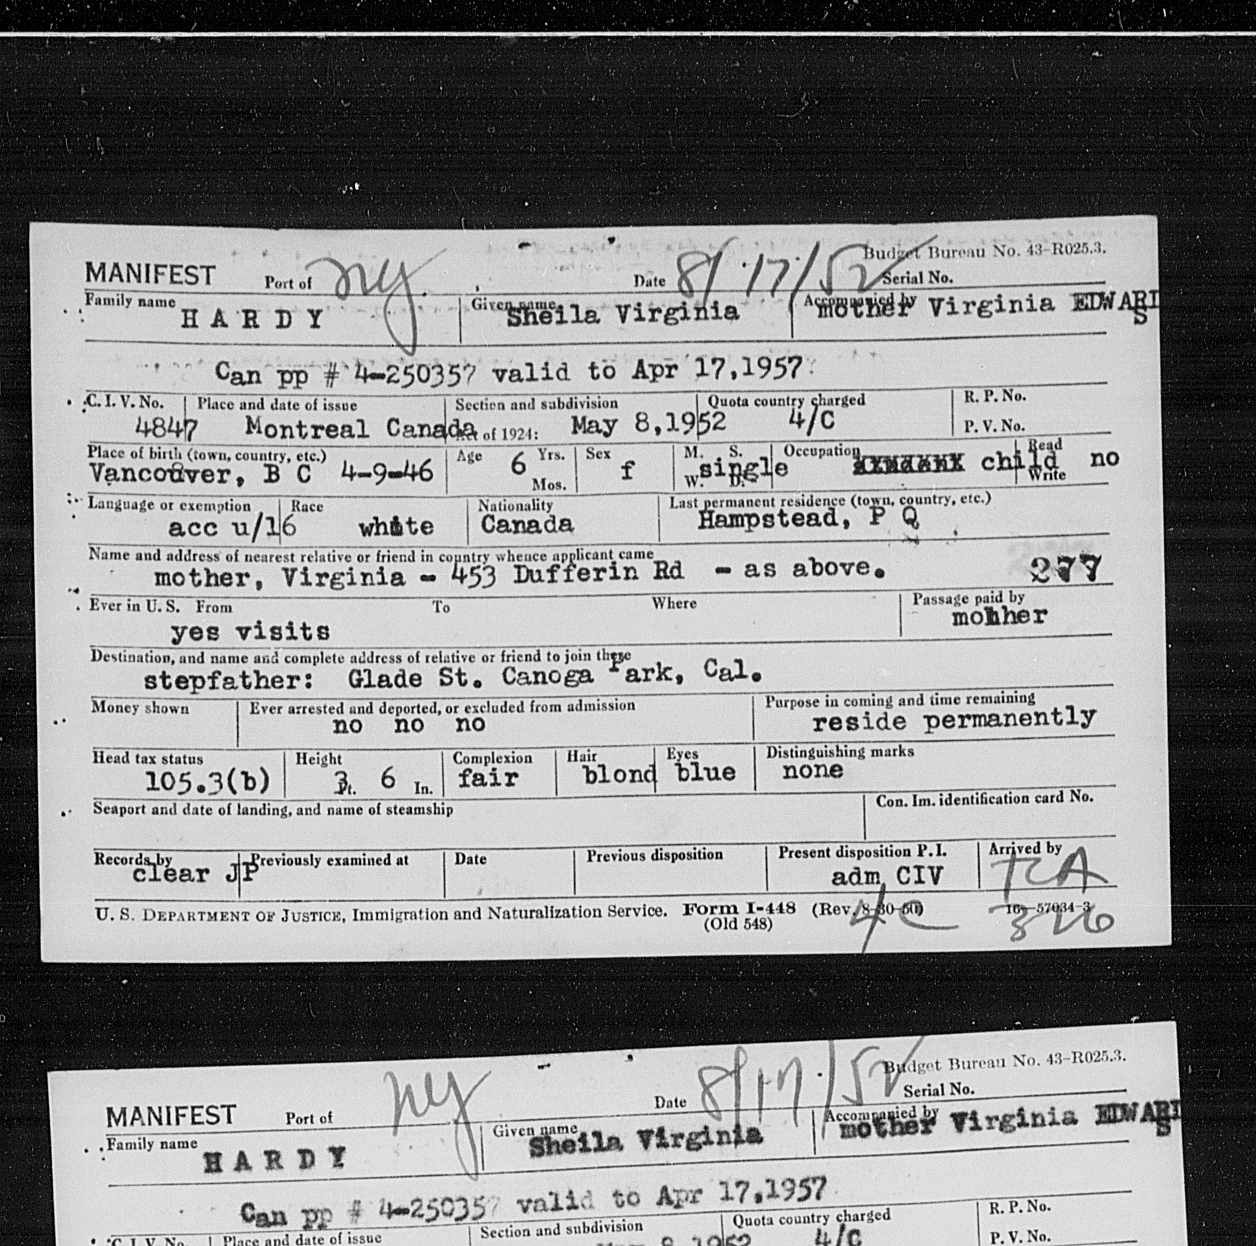 Budget Bureau No. 43-R025.3.
MANIFEST Port of NY Date 8/17/52 Serial No.
Family name Given name Accompanied by
H A R D Y Sheila Virginia mother Virginia EDWARDS
Can pp # 4-250357 valid to Apr 17,1957
C. I. V. No. Place and date of issue Section and subdivision Quota country charged R. P. No.
4847 Montreal Canada Act of 1924: May 8,1952 4/C P. V. No.
Place of birth (town, country, etc.) Age Yrs. Sex M. S. Occupation Read
Vancouver, B C 4-9-46 6 Mos. f W. D. single child Write no
Language or exemption Race Nationality Last permanent residence (town, country, etc.)
acc u/16 white Canada Hampstead, P Q
Name and address of nearest relative or friend in country whence applicant came
mother, Virginia - 453 Dufferin Rd - as above. 277
Ever in U. S. From To Where Passage paid by
yes visits mother
Destination, and name and complete address of relative or friend to join there
stepfather: Glade St. Canoga Park, Cal.
Money shown Ever arrested and deported, or excluded from admission Purpose in coming and time remaining
no no no reside permanently
Head tax status Height Complexion Hair Eyes Distinguishing marks
105.3(b) 3 Ft. 6 In. fair blond blue none
Seaport and date of landing, and name of steamship Con. Im. identification card No.
Records by Previously examined at Date Previous disposition Present disposition P. I. Arrived by
clear JP adm CIV TCA
U. S. DEPARTMENT OF JUSTICE, Immigration and Naturalization Service. Form I-448 (Rev. 8-30-50) 16-57034-3
(Old 548) 4/C 826
Budget Bureau No. 43-R025.3.
MANIFEST Port of NY Date 8/17/52 Serial No.
Family name Given name Accompanied by
H A R D Y Sheila Virginia mother Virginia EDWARDS
Can pp # 4-250357 valid to Apr 17,1957
C. I. V. No. Place and date of issue Section and subdivision Quota country charged R. P. No.
1952 4/C P. V. No.